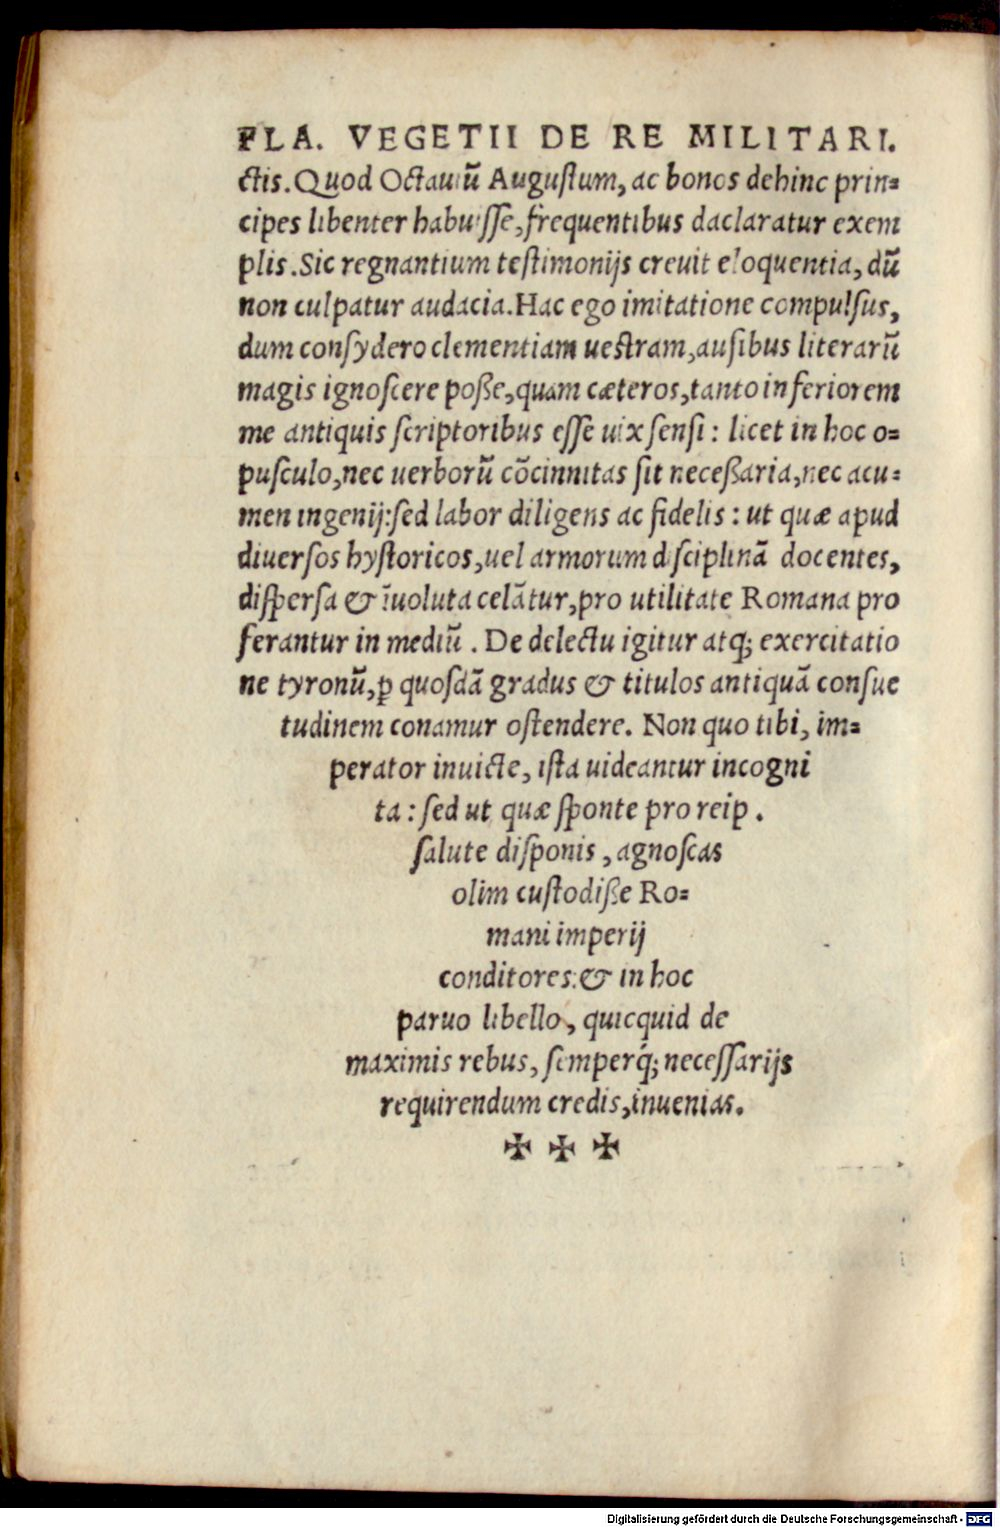 FLA. VEGETII DE RE MILITARI.
ctis. Quod Octauiū Augustum, ac bonos dehinc prin=
cipes libenter habuisse, frequentibus daclaratur exem
plis. Sic regnantium testimonijs creuit eloquentia, dū
non culpatur audacia. Hac ego imitatione compulsus,
dum consydero clementiam uestram, ausibus literarū
magis ignoscere poße, quam cæteros, tanto inferiorem
me antiquis scriptoribus esse uix sensi: licet in hoc o=
pusculo, nec uerborū cōcinnitas sit neceßaria, nec acu=
men ingenij: sed labor diligens ac fidelis: ut quæ apud
diuersos hystoricos, uel armorum disciplinā docentes,
dispersa & īuoluta celātur, pro utilitate Romana pro
ferantur in mediū. De delectu igitur atq; exercitatio
ne tyronū, ꝑ quosdā gradus & titulos antiquā consue
tudinem conamur ostendere. Non quo tibi, im=
perator inuicte, ista uideantur incogni
ta: sed ut quæ sponte pro reip.
salute disponis, agnoscas
olim custodiße Ro=
mani imperij
conditores: & in hoc
paruo libello, quicquid de
maximis rebus, semperq́; necessarijs
requirendum credis, inuenias.
✠ ✠ ✠
Digitalisierung gefördert durch die Deutsche Forschungsgemeinschaft - DFG